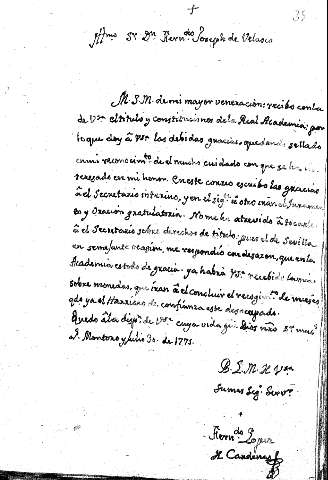 +
35
Sr. Dn. Fern.do Joseph de Velasco
M. S. M. de mi mayor veneracion: recibo con la
de V.S.a el titulo y constituciones de la Real Academia; por
lo que doy a V.S.a las debidas gracias quedando sellado
en mi reconocim.to el mucho cuidado con que se
en mi honor. En este correo escribo las gracias
a el Secretario interino, y en el sig.te a otro iran el Juramen
to y Oracion gratulatoria. No me he atrevido à tocarle
à el Secretario sobre derechos de titulo, pues el de Sevilla
en semejante ocasion, me respondio con desazon, que en la
Academia es todo de gracia. ya habrà V.S.a recibido la mia
sobre monedas, que iran à el concluir el recogim.to de mieses
q.do ya el Harriero de confianza este desocupado.
Quedo à la disp.n de V.S.a cuya vida gu.e Dios
Montoro y Julio 30. de 1775.
B. L. M. de V.S.a
su mas seg.o Serv.r
Fern.do Lopez
de Cardenas